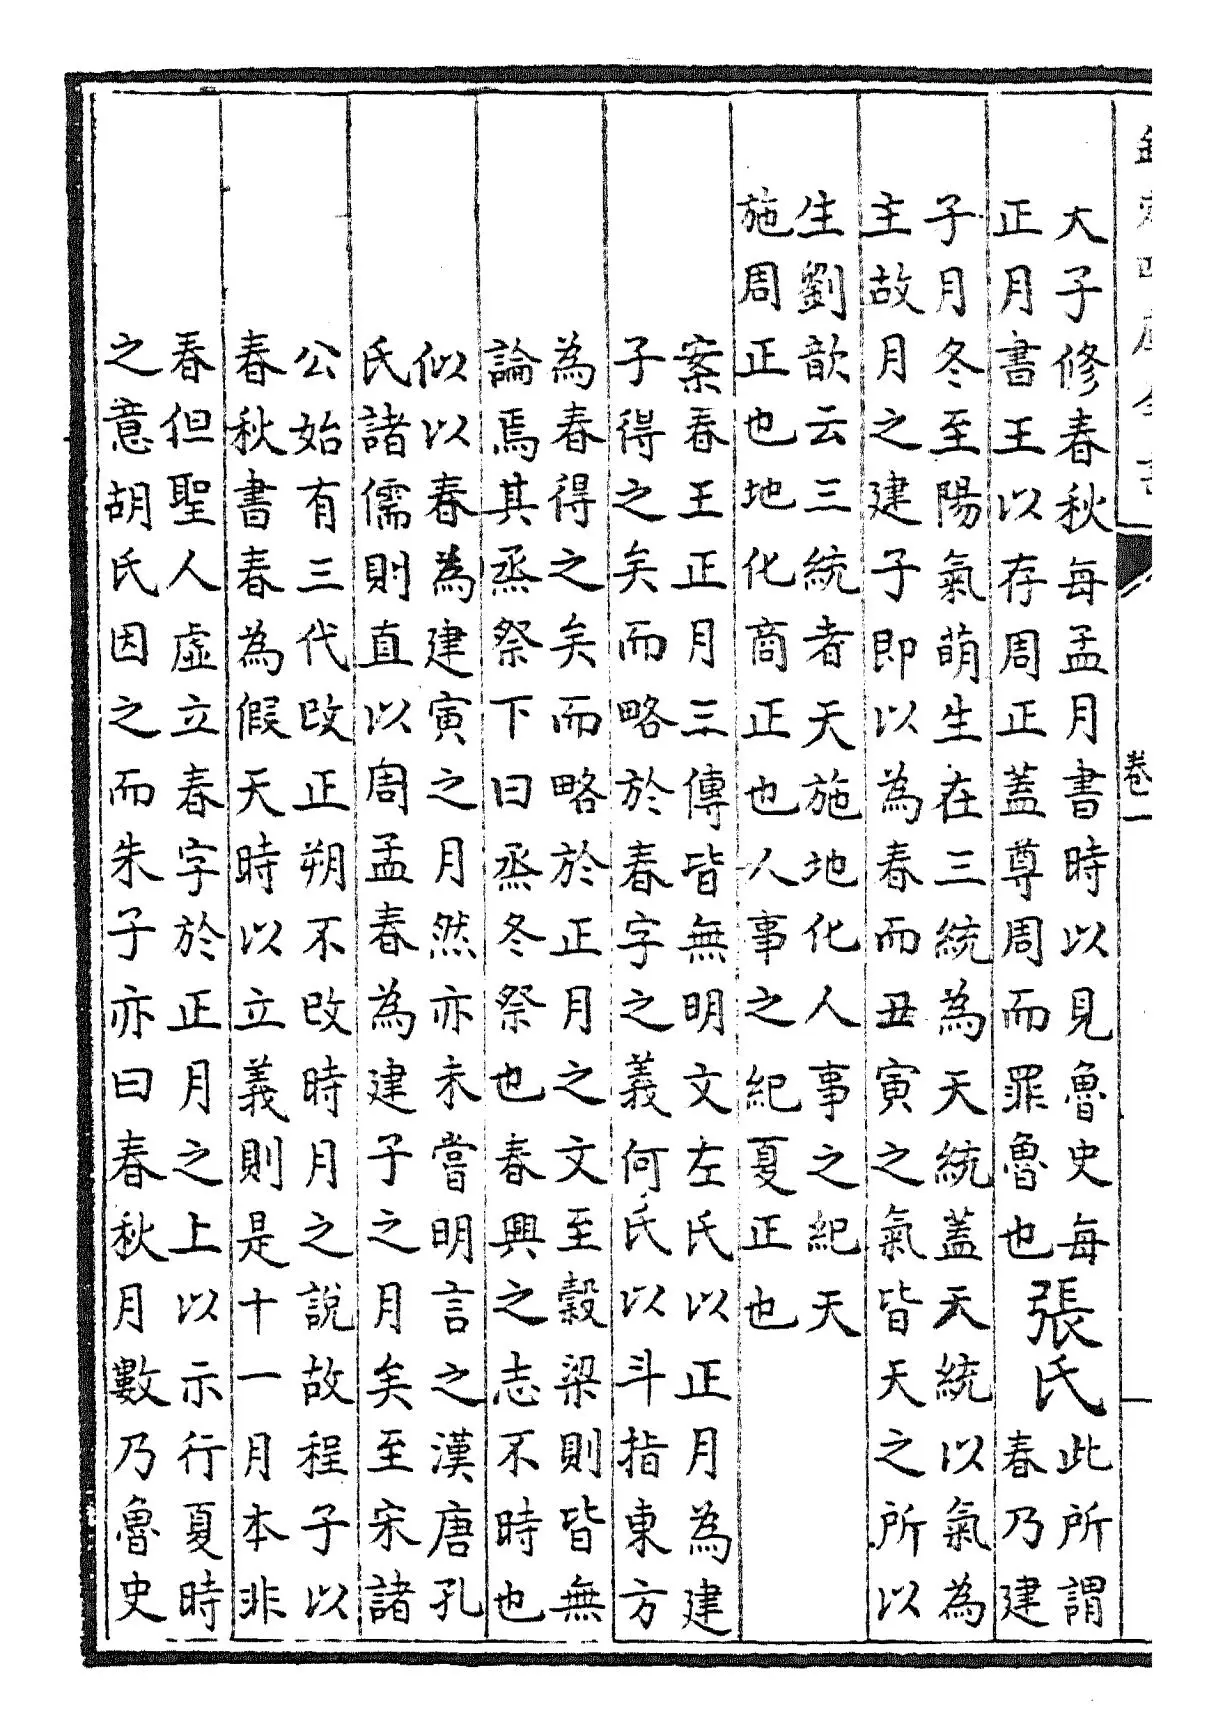 卷一
大子修春秋每孟月書時以見魯史每
正月書王以存周正蓋尊周而罪魯也
張氏
此所謂
春乃建
子月冬至陽氣萌生在三統為天統蓋天統以氣為
主故月之建子即以為春而丑寅之氣皆天之所以
生劉歆云三統者天施地化人事之紀天
施周正也地化商正也人事之紀夏正也
案春王正月三傳皆無明文左氏以正月為建
子得之矣而略於春字之義何氏以斗指東方
為春得之矣而略於正月之文至穀梁則皆無
論焉其烝祭下曰烝冬祭也春興之志不時也
似以春為建寅之月然亦未嘗明言之漢唐孔
氏諸儒則直以周孟春為建子之月矣至宋諸
公始有三代改正朔不改時月之說故程子以
春秋書春為假天時以立義則是十一月本非
春但聖人虛立春字於正月之上以示行夏時
之意胡氏因之而朱子亦曰春秋月數乃魯史